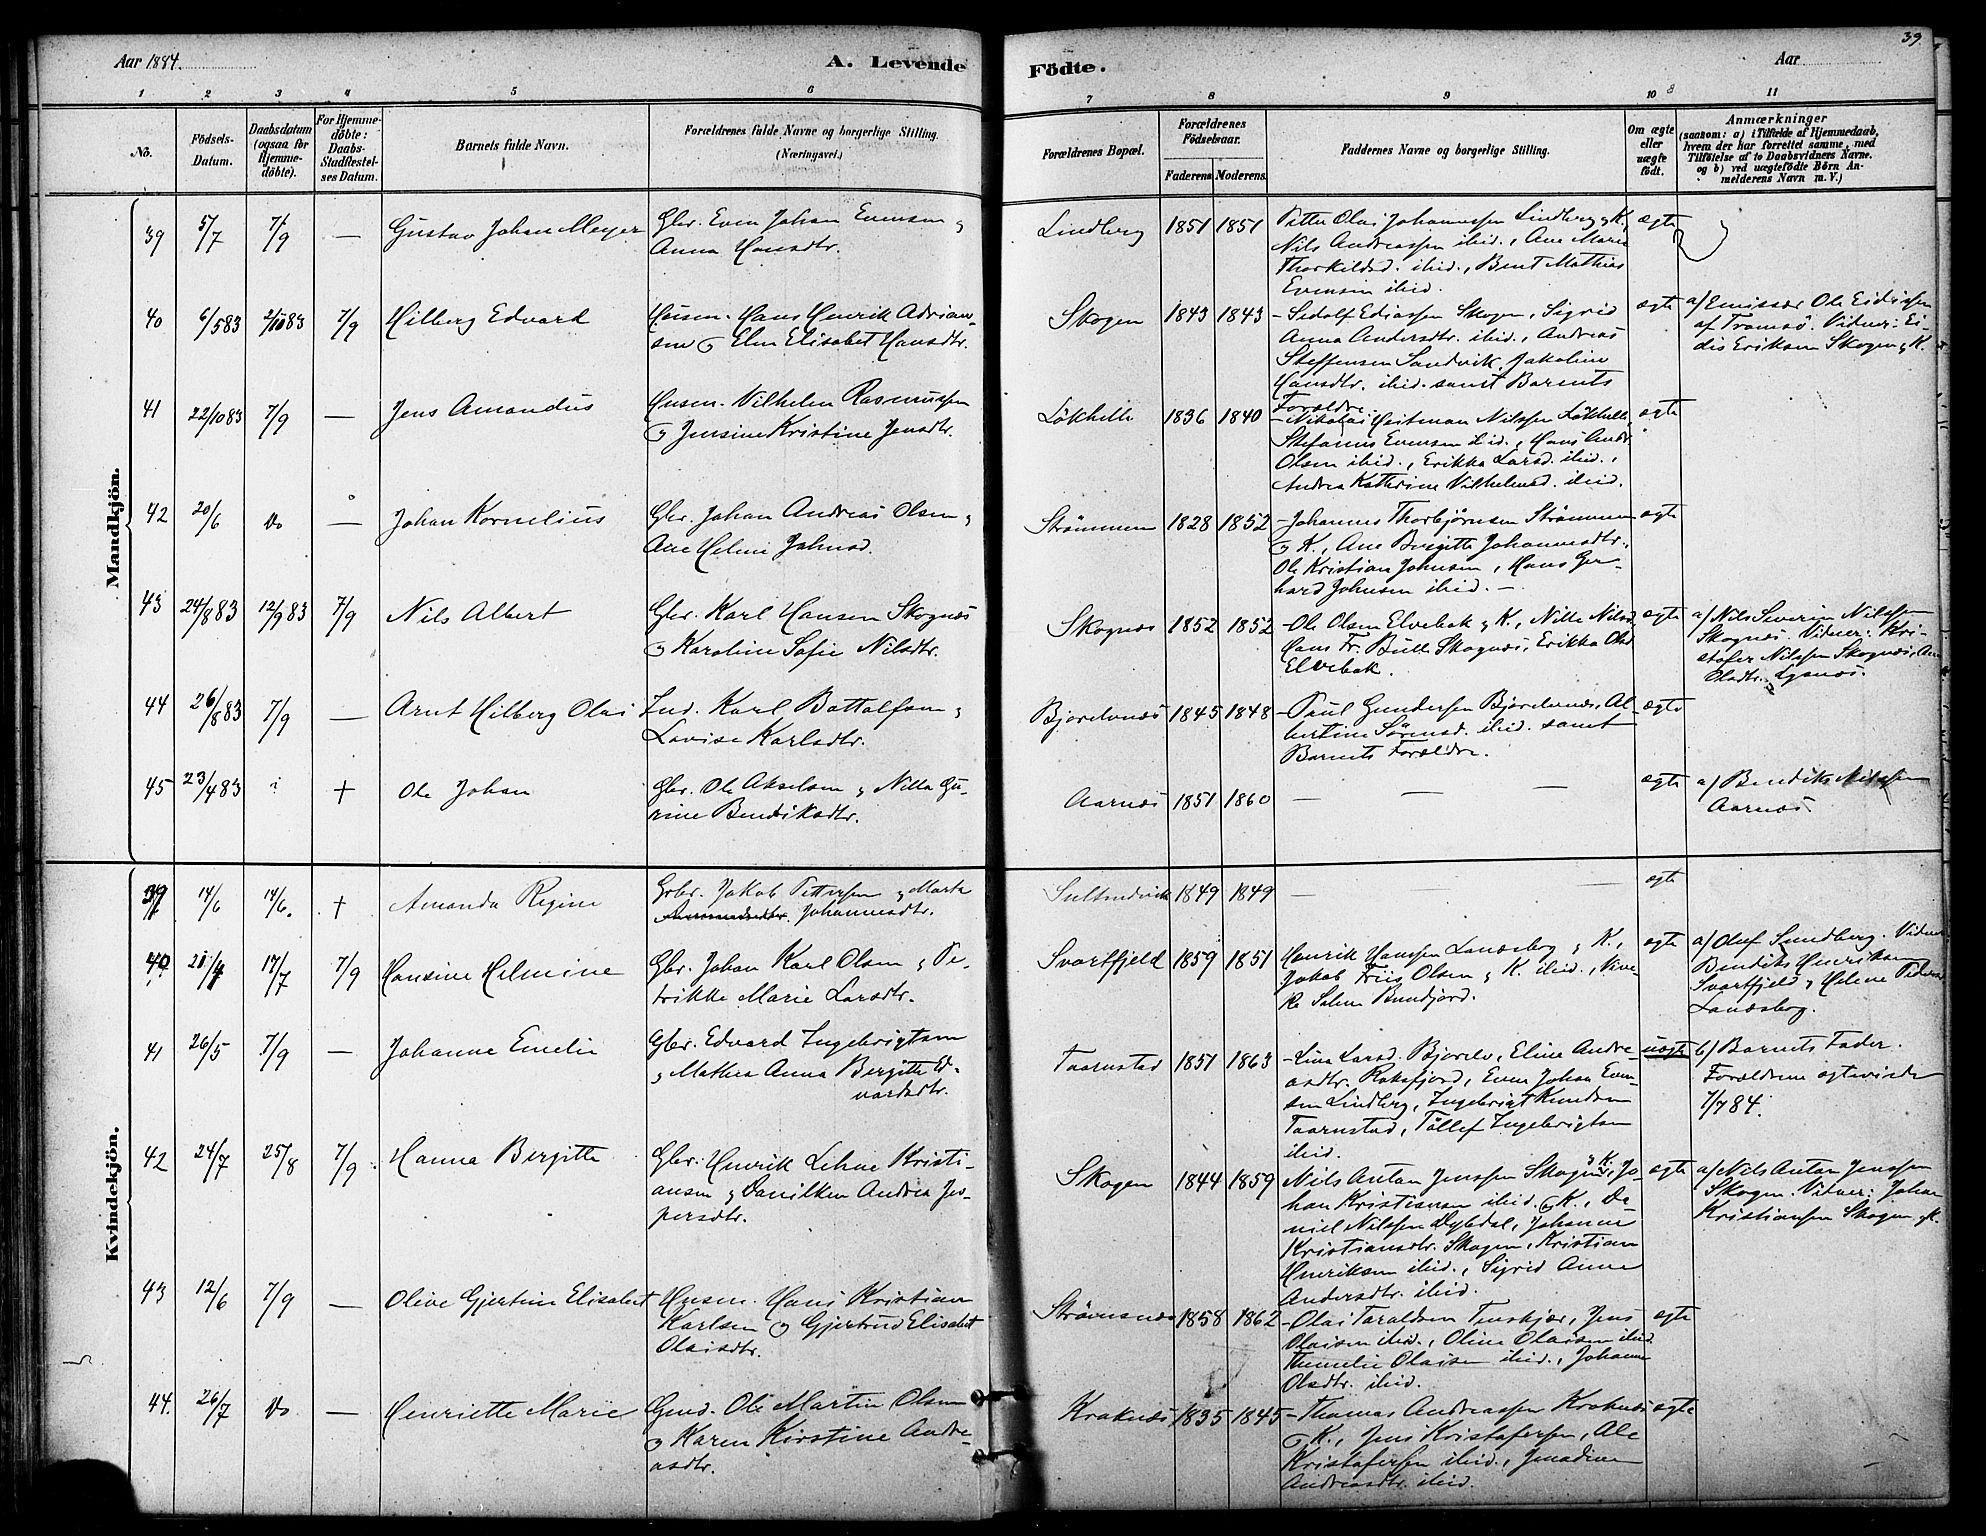 39.
Aar 1884.
A. Levende
Födte.
Aar
1 2 3 4 5 6 7 8 9 10 8 11
No.
Födsels-
Datum.
Daabsdatum
(ogsaa for
Hjemme-
döbte).
For Hjemme-
döbte:
Daabs-
Stadfæstel-
ses Datum.
Barnets fulde Navn.
Forældrenes fulde Navne og borgerlige Stilling.
(Næringsvei.)
Forældrenes Bopæl.
Forældrenes
Födselsaar.
Faderens. Moderens.
Faddernes Navne og borgerlige Stilling.
Om ægte
eller
uægte
födt.
Anmærkninger
(saasom: a) i Tilfælde af Hjemmedaab,
hvem der har forrettet samme, med
Tilföielse af to Daabsvidners Navne.
og b) ved uægtefödte Börn An-
melderens Navn m. V.)
Mandkjön.
39 5/7 7/9 — Gustav Johan Meyer
Gbr. Even Johan Evensen &
Anna Hansdtr.
Lindberg 1851 1851
Petter Olai Johannessen Lindberg & K.,
Nils Andreassen ibid., Ane Marie
Thorkildsd. ibid., Bent Mathias
Evensen ibid.
ægte
40 6/5 83 2/10 83 7/9 Hilberg Edvard
Husm. Hans Henrik Adrian-
sen & Elen Elisabet Hansdtr.
Skogen 1843 1843
— Sedolf Ediassen Skogen, Sigrid
Anna Andersdtr. ibid., Andreas
Steffensen Sandvik, Jakobine
Hansdtr. ibid. samt Barnets
Forældre.
ægte
a/ Emissær Ole Eidissen
af Tromsö. Vidner: Ei-
dis Eriksen Skogen & K.
41 22/10 83 7/9 — Jens Amandus
Husm. Vilhelm Rasmussen
& Jensine Kristine Jensdtr.
Lökhelle 1836 1840
— Nikolai Heitman Nilssen Lökhelle,
Stefanus Evensen ibid., Hans Andr.
Olsen ibid., Erikka Larsd. ibid.,
Andrea Kathrine Vilhelmsd. ibid.
ægte
42 20/6 Do — Johan Kornelius
Gbr. Johan Andreas Olsen &
Ane Helene Johnsd.
Strömmen 1828 1852
— Johannes Thorbjörnsen Strömmen
& K., Ane Birgitte Johannesdtr.,
Ole Kristian Johnsen, Hans Ger-
hard Johnsen ibid. —
ægte
43 24/8 83 12/9 83 7/9 Nils Albert
Gbr. Karl Hansen Skognæs
& Karoline Sofie Nilsdtr.
Skognæs 1852 1852
— Ole Olsen Elvebak & K., Nille Nilsd.
Hans Fr. Bull Skognæs, Erikka Olsd.
Elvebak.
ægte
a/ Nils Severin Nilssen
Skognæs. Vidner: Kri-
stofer Nilssen Skognæs, Ane
Olsdtr. Lysnæs.
44 26/8 83 7/9 — Arnt Hilberg Olai
Ind. Karl Bottolfsen &
Lovise Karlsdtr.
Bjorelvnæs 1845 1848
— Paul Gundersen Bjorelvnæs, Al-
bertine Sörensd. ibid. samt
Barnets Forældre.
ægte
45 23/4 83 + Ole Johan
Gbr. Ole Akselsen & Nilla Gu-
rine Bendiksdtr.
Aarnæs 1851 1860
— — —
ægte
a/ Bendiks Nilssen
Aarnæs.
Kvindekjön.
39 14/6 14/6. + Amanda Regine
Gbr. Jakob Pettersen & Marta
Johannesdtr.
Sultindvik 1849 1849
— —
ægte
40 20/4 17/7 7/9 Hansine Helmine
Gbr. Johan Karl Olsen & Pe-
trikke Marie Larsdtr.
Svartfjeld 1859 1851
Henrik Hanssen Landsberg & K.,
Jakob Friis Olsen & K. ibid.,
Salen Bundjord.
ægte
a/ Oluf Sundberg. Vidner:
Bendiks Henriksen
Svartfjeld & Helene Pedersd.
Landsberg.
41 26/5 7/9 — Johanne Emelie
Gbr. Edvard Ingebrigtsen
& Mathea Anna Bergitte Ed-
vardsdtr.
Taarnstad 1851 1863
— Lina Larsd. Bjorelv, Eline Andre-
asdtr. Roksfjord, Even Johan Even-
sen Lindberg, Ingebrigt Knudsen
Taarnstad, Tollef Ingebrigtsen
ibid.
uægte
b/ Barnets Fader.
Forældrene ægteviede
7/9 84.
42 24/7 25/8 7/9 Hanna Bergitte
Gbr. Henrik Lehne Kristi-
ansen & Danilken Andrea Jes-
persdtr.
Skogen 1844 1859
Nils Antan Jenssen Skogen & K., Jo-
han Kristiansen ibid. & K., Da-
niel Nilssen Dybdal, Johanne
Kristiansdtr. Skogen, Kristian
Henriksen ibid., Sigrid Anna
Andersdtr. ibid.
ægte
a/ Nils Antan Jenssen
Skogen. Vidner: Johan
Kristianssen Skogen & K.
43 12/6 7/9 — Olive Gjertine Elisabet
Husm. Hans Kristian
Karlsen & Gjertrud Elisabet
Olaisdtr.
Strömsnæs 1858 1862
— Olai Taraldsen Tenskjær, Jens
Olaisen ibid., Oline Olaisen ibid.
Olaisen ibid., Johanna
Olsdtr. ibid.
ægte
44. 26/7 Do — Henriette Marie
Gmd. Ole Martin Olsen
& Karen Kirstine Andre-
asdtr.
Kraknæs 1835 1845
— Thomas Andreassen Kraknæs
& K., Jens Kristofersen, Ole
Kristofersen ibid., Jensdine
Andreasdtr. ibid.
ægte